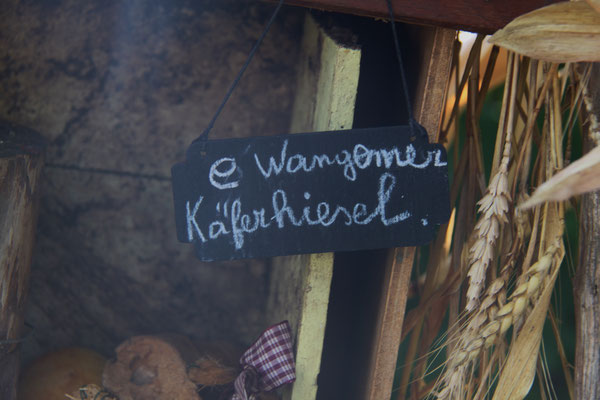 e Wangemer
Käferhiesel.